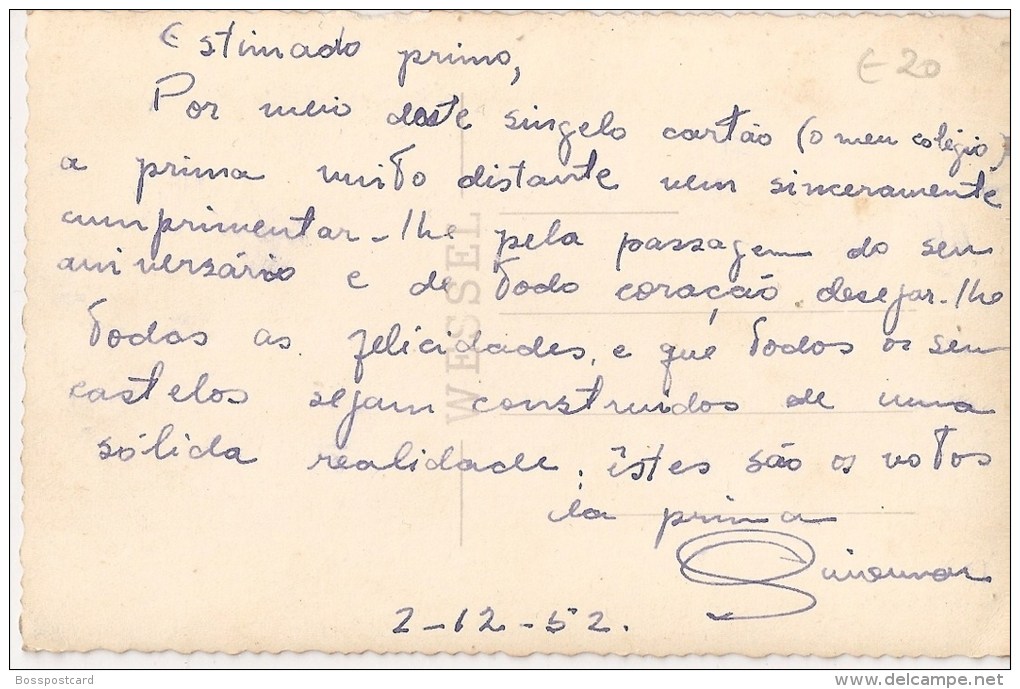 Estimado primo,
E20
Por meio deste singelo cartão (o meu colégio)
a prima muito distante vem sinceramente
cumprimentar-lhe pela passagem do seu
aniversário e de todo coração desejar-lhe
todas as felicidades, e que todos os seu
castelos sejam construidos de uma
sólida realidade. êstes são os votos
da prima
2-12-52.
WESSEL
Bosspostcard
delcampe.net